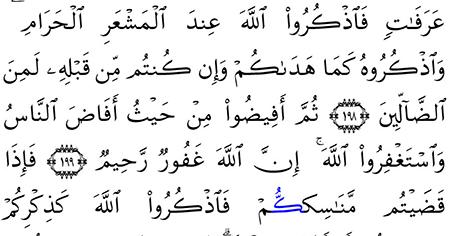 عَرَفَـٰتٍ فَٱذْكُرُوا۟ ٱللَّهَ عِندَ ٱلْمَشْعَرِ ٱلْحَرَامِ
وَٱذْكُرُوهُ كَمَا هَدَىٰكُمْ وَإِن كُنتُم مِّن قَبْلِهِۦ لَمِنَ
ٱلضَّآلِّينَ ﴿١٩٨﴾ ثُمَّ أَفِيضُوا۟ مِنْ حَيْثُ أَفَاضَ ٱلنَّاسُ
وَٱسْتَغْفِرُوا۟ ٱللَّهَ ۚ إِنَّ ٱللَّهَ غَفُورٌ رَّحِيمٌ ﴿١٩٩﴾ فَإِذَا
قَضَيْتُم مَّنَـٰسِكَكُمْ فَٱذْكُرُوا۟ ٱللَّهَ كَذِكْرِكُمْ